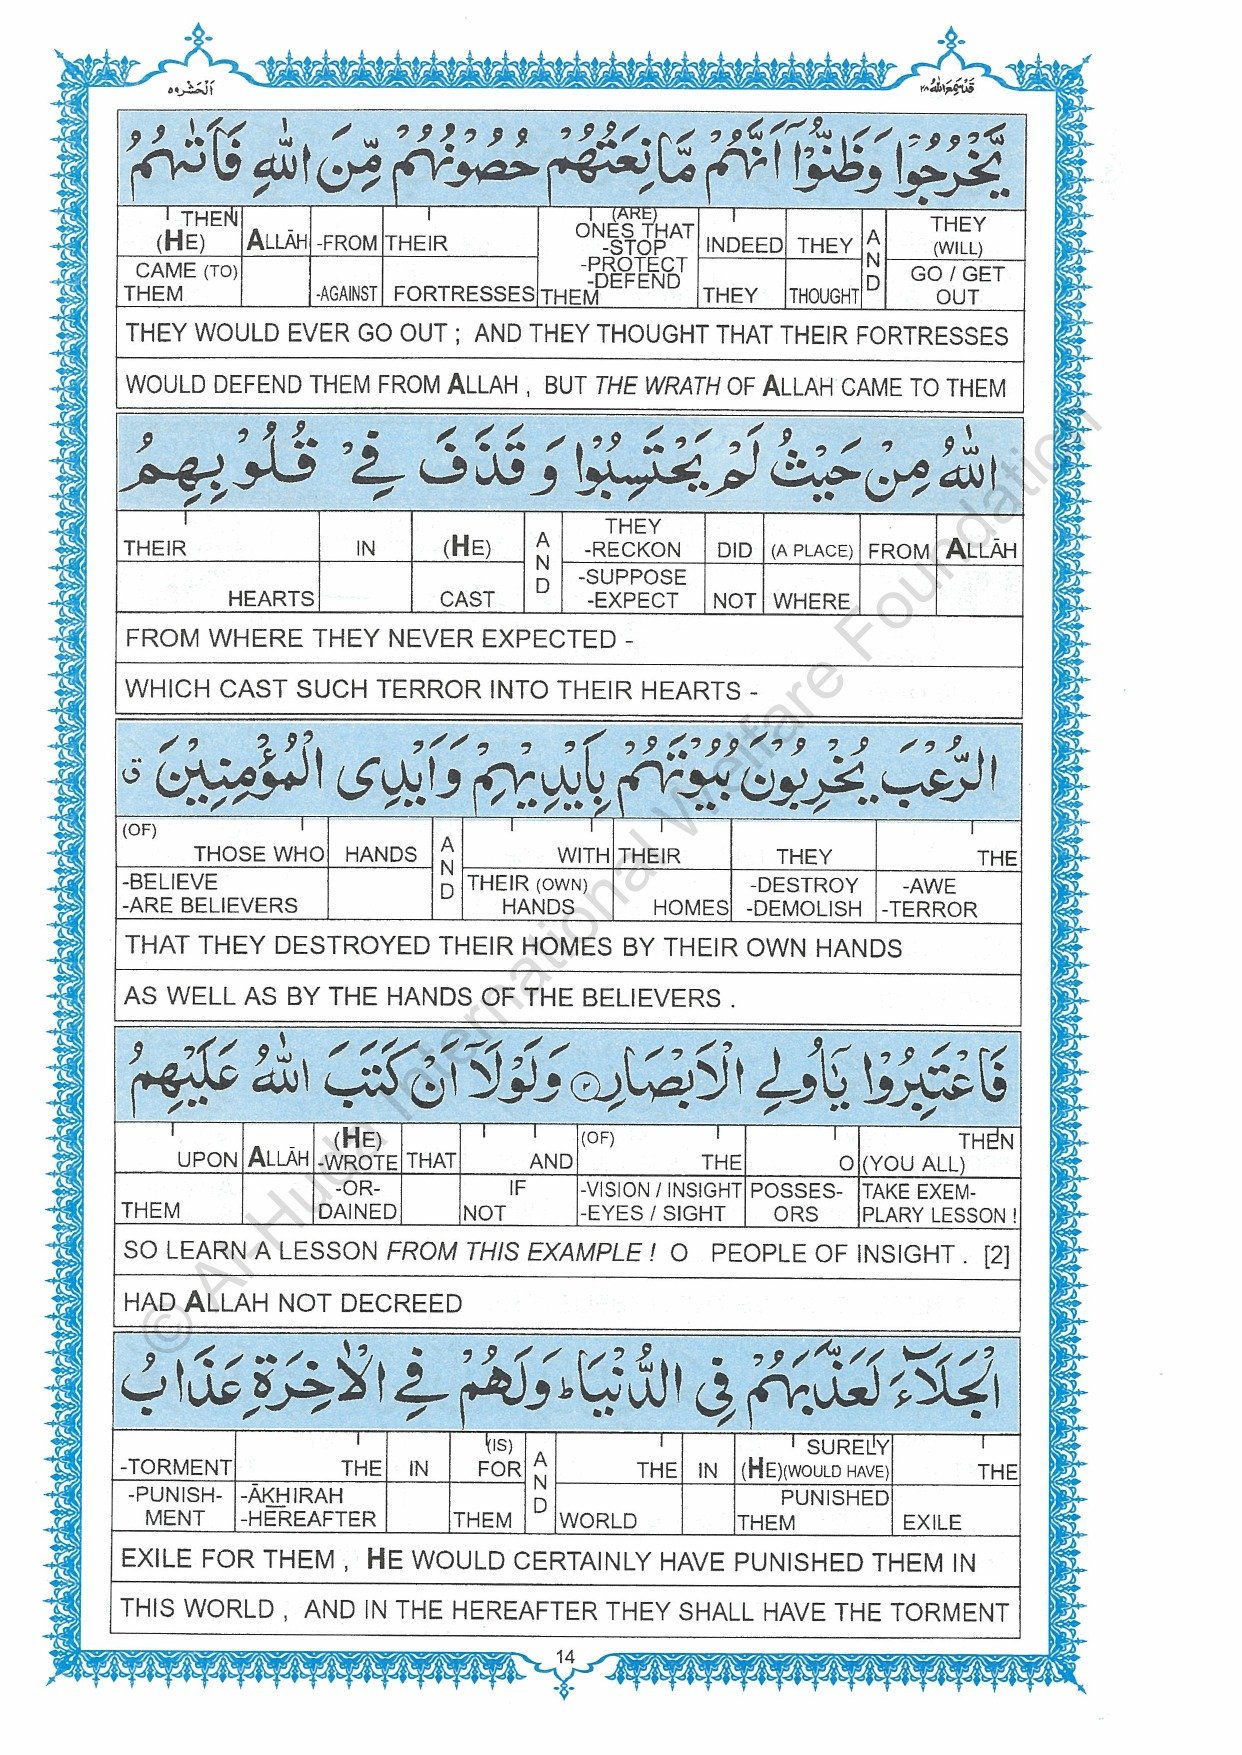 اَلْحَشْر ٥٩
قَدْ سَمِعَ اللّٰهُ ٢٨
يَّخْرُجُوْا وَظَنُّوْٓا اَنَّهُمْ مَّانِعَتُهُمْ حُصُوْنُهُمْ مِّنَ اللّٰهِ فَاَتٰىهُمُ
THEN (HE) CAME (TO) THEM | ALLĀH | -FROM -AGAINST | THEIR FORTRESSES | (ARE) ONES THAT -STOP -PROTECT -DEFEND THEM | INDEED THEY | THEY THOUGHT | AND | THEY (WILL) GO / GET OUT
THEY WOULD EVER GO OUT ; AND THEY THOUGHT THAT THEIR FORTRESSES
WOULD DEFEND THEM FROM ALLAH , BUT THE WRATH OF ALLAH CAME TO THEM
اللّٰهُ مِنْ حَيْثُ لَمْ يَحْتَسِبُوْا وَقَذَفَ فِيْ قُلُوْبِهِمُ
THEIR HEARTS | IN | (HE) CAST | AND | THEY -RECKON -SUPPOSE -EXPECT | DID NOT | (A PLACE) WHERE | FROM | ALLĀH
FROM WHERE THEY NEVER EXPECTED -
WHICH CAST SUCH TERROR INTO THEIR HEARTS -
الرُّعْبَ يُخْرِبُوْنَ بُيُوْتَهُمْ بِاَيْدِيْهِمْ وَاَيْدِى الْمُؤْمِنِيْنَ ق
(OF) THOSE WHO -BELIEVE -ARE BELIEVERS | HANDS | AND | WITH THEIR (OWN) HANDS | THEIR HOMES | THEY -DESTROY -DEMOLISH | THE -AWE -TERROR
THAT THEY DESTROYED THEIR HOMES BY THEIR OWN HANDS
AS WELL AS BY THE HANDS OF THE BELIEVERS .
فَاعْتَبِرُوْا يٰٓاُولِي الْاَبْصَارِ ٢ وَلَوْلَآ اَنْ كَتَبَ اللّٰهُ عَلَيْهِمُ
UPON THEM | ALLĀH | (HE) -WROTE -OR-DAINED | THAT | AND IF NOT | (OF) THE -VISION / INSIGHT -EYES / SIGHT | O POSSES-ORS | THEN (YOU ALL) TAKE EXEM-PLARY LESSON !
SO LEARN A LESSON FROM THIS EXAMPLE ! O PEOPLE OF INSIGHT . [2]
HAD ALLAH NOT DECREED
الْجَلَآءَ لَعَذَّبَهُمْ فِي الدُّنْيَا ط وَلَهُمْ فِي الْاٰخِرَةِ عَذَابُ
-TORMENT -PUNISH-MENT | THE -ĀKHIRAH -HEREAFTER | IN | (IS) FOR THEM | AND | THE WORLD | IN | SURELY (HE)(WOULD HAVE) PUNISHED THEM | THE EXILE
EXILE FOR THEM , HE WOULD CERTAINLY HAVE PUNISHED THEM IN
THIS WORLD , AND IN THE HEREAFTER THEY SHALL HAVE THE TORMENT
14
© Al-Huda International Welfare Foundation